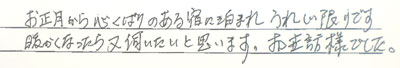 お正月から心くばりのある宿に泊まれうれしい限りです
暖かくなったら又伺いたいと思います。お世話様でした。